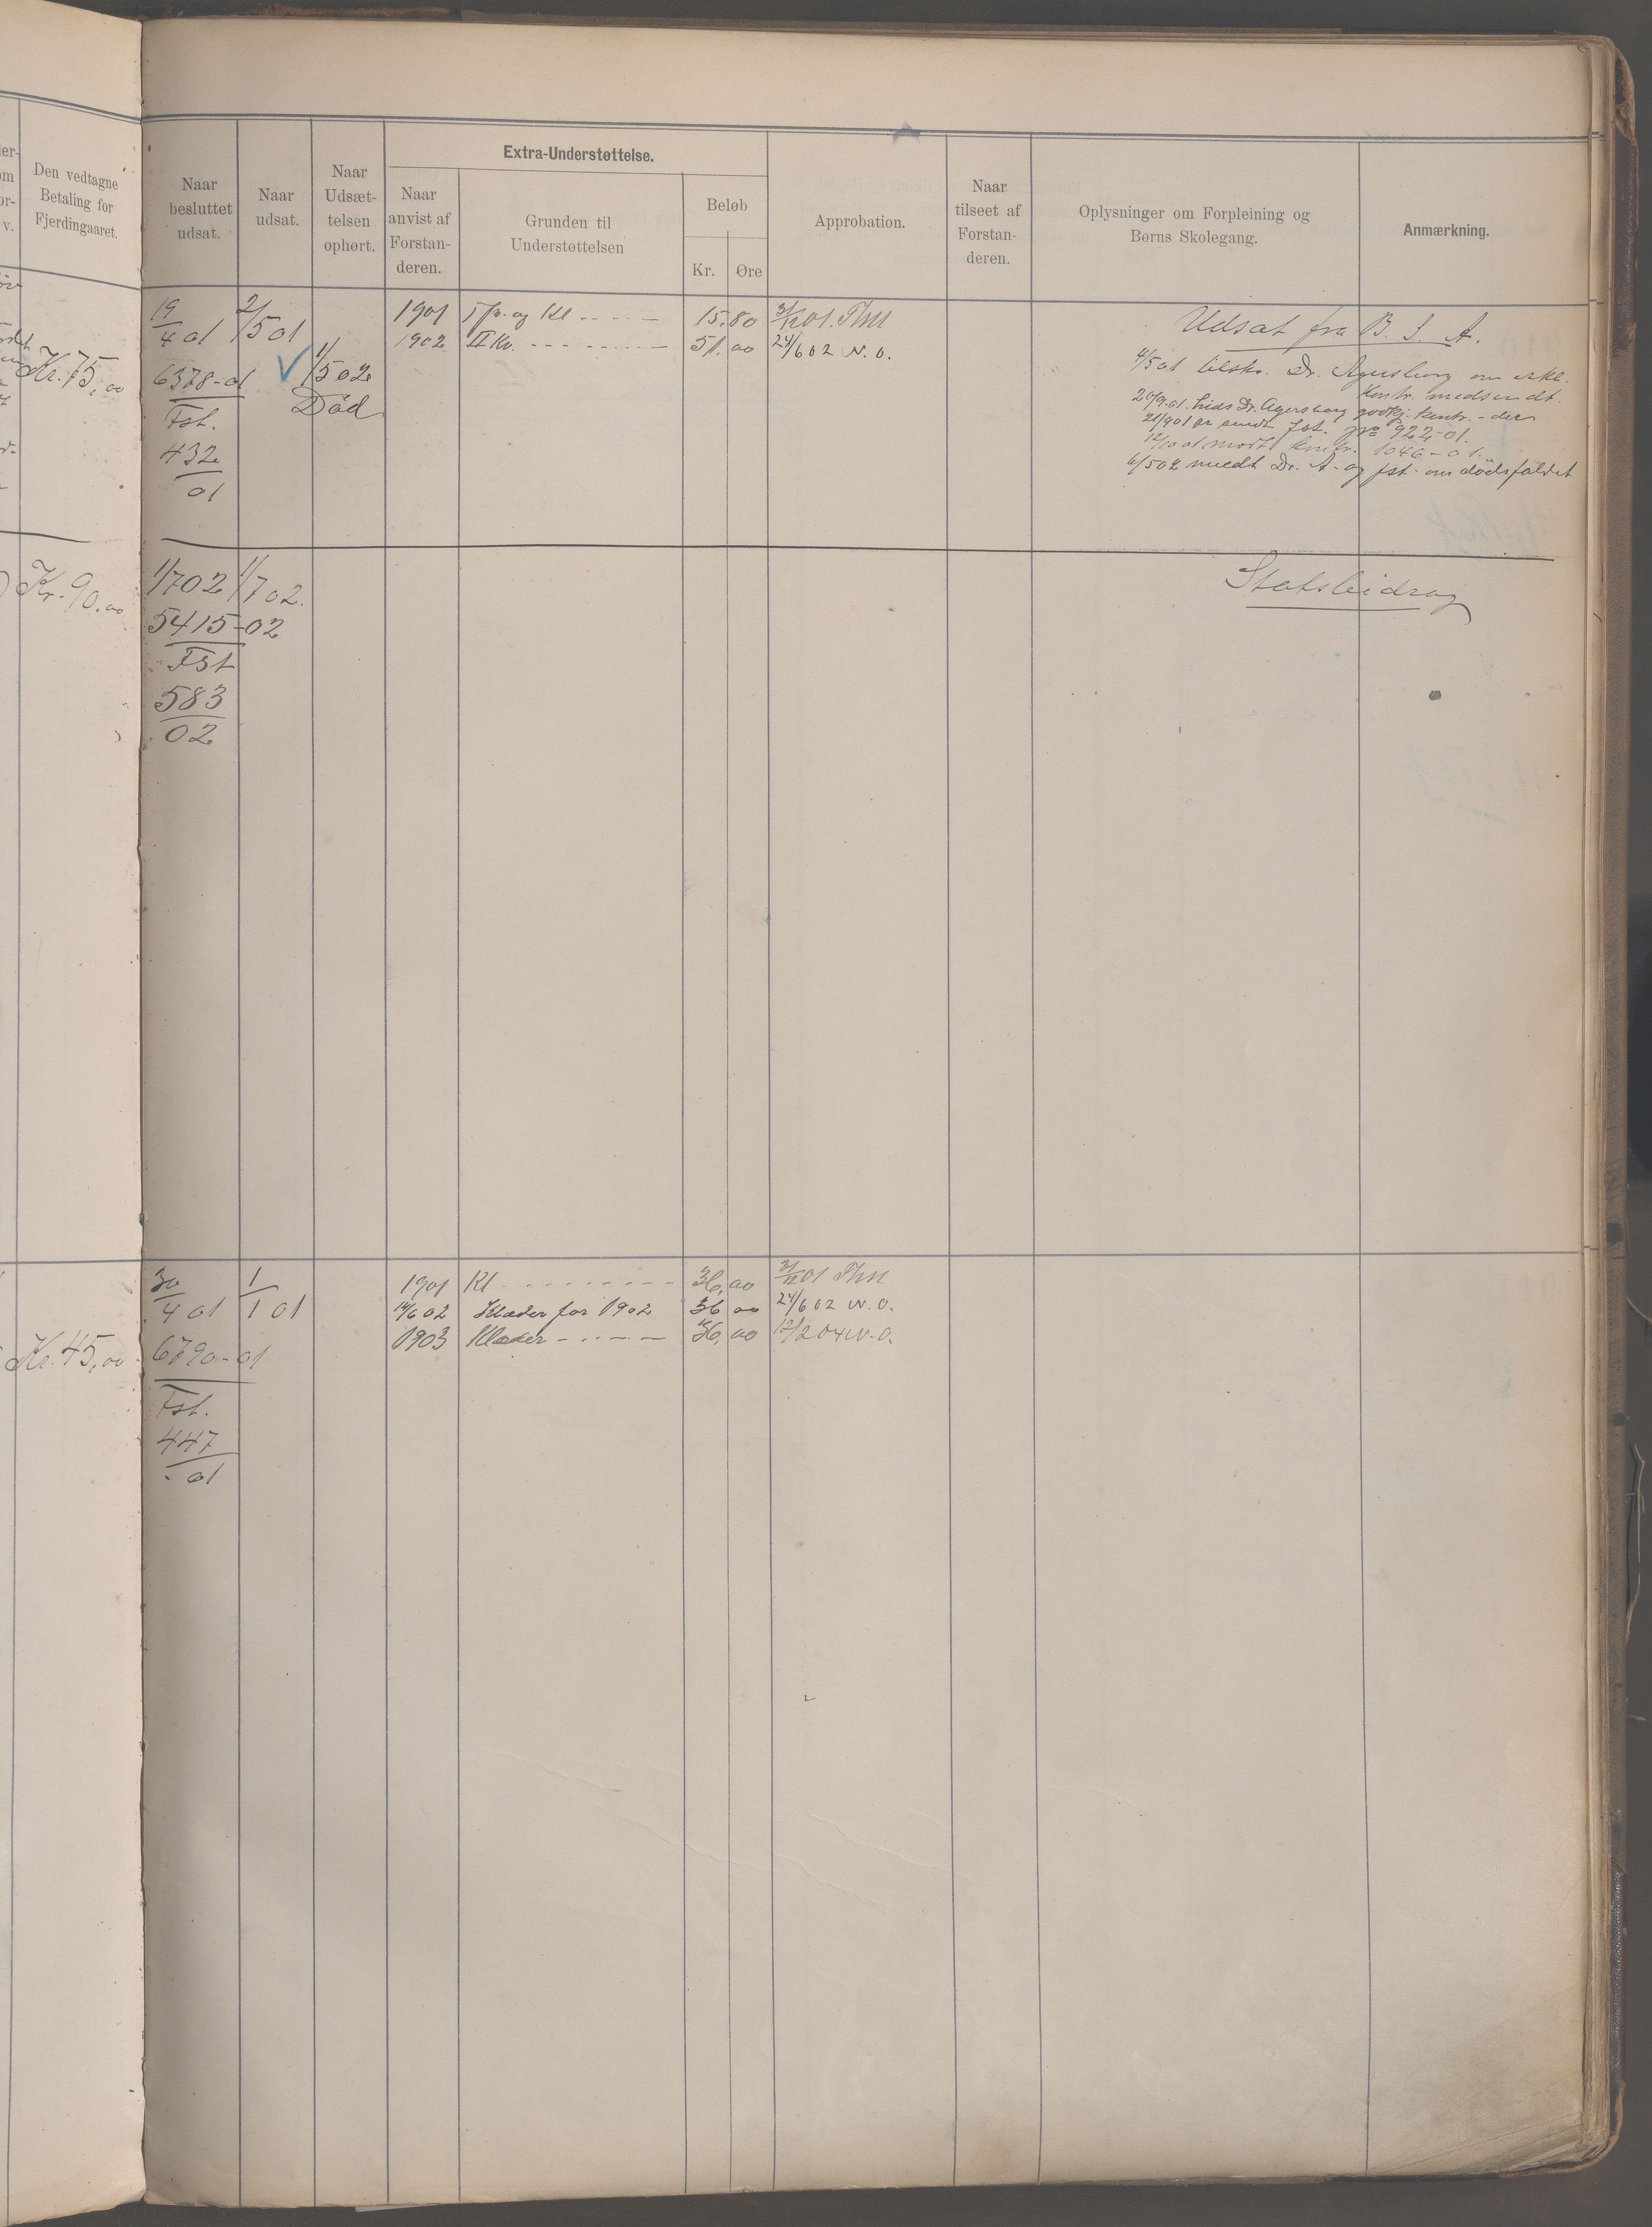 Den vedtagne
Betaling for
Fjerdingaaret.
Naar
besluttet
udsat.
Naar
udsat.
Naar
Udsæt-
telsen
ophørt.
Extra-Understøttelse.
Naar
anvist af
Forstan-
deren.
Grunden til
Understøttelsen
Beløb
Kr. Øre
Approbation.
Naar
tilseet af
Forstan-
deren.
Oplysninger om Forpleining og
Børns Skolegang.
Anmærkning.
Kr. 75,00
19/4 01
6378-01
Fst.
432
01
2/5 01
1/5 02
Död
1901 og Kl 15.80 31/12 01.
1902 II Kv. 51.00 24/6 02 N. O.
Udsat fra B. S. A.
4/5 01 tilskr. Dr. Agersborg om
Kontr. medsendt.
20/9.01. hids Dr. Agersborg godkj. kontr. - der
21/9 01 Fst. No 922-01.
12/10 01 modt. kontr. 1046-01.
6/5 02 meedt Dr. A. og fst. om dödsfaldet
Kr. 90.00
1/7 02 1/7 02.
5415-02
Fst
583
02
Statsbidrag
Kr. 45,00
30/4 01
6790-01
Fst.
447
01
1/1 01
1901 Kl 36,00 31/12 01
14/6 02 Klæder for 1902 36 00 24/6 02 N. O.
1903 Klæder 36,00 12/2 04 N. O.